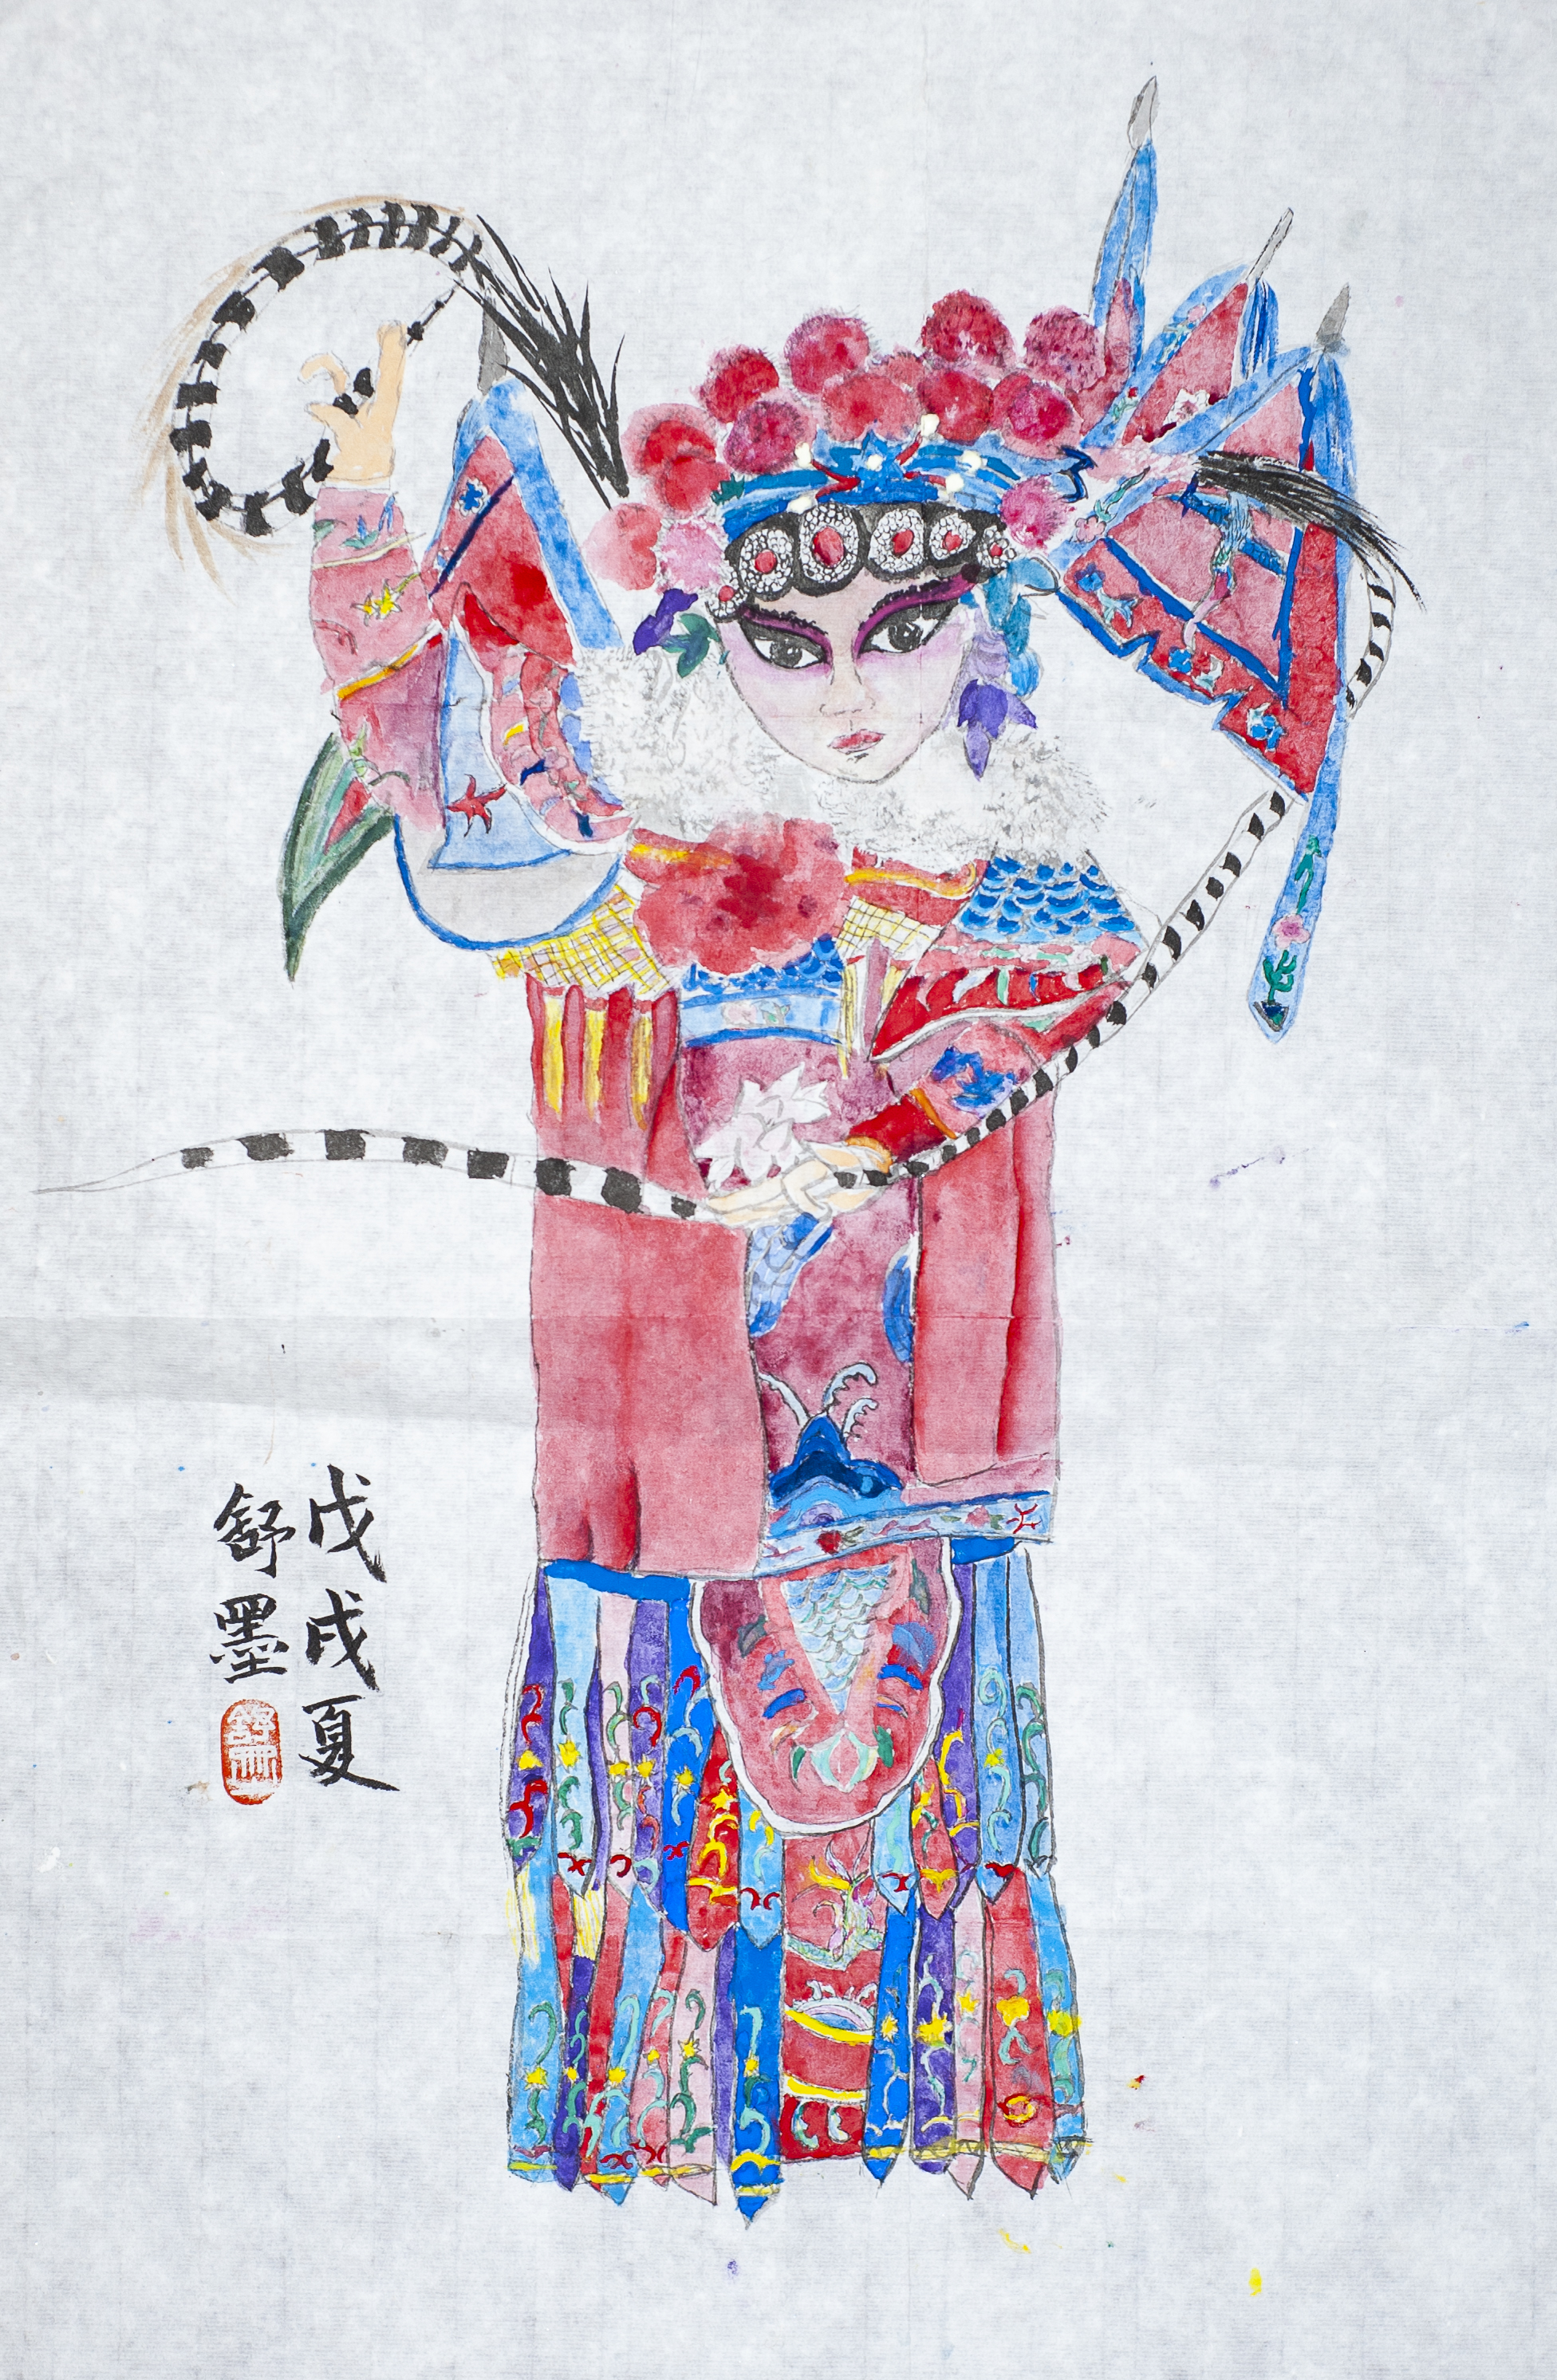 戊戌夏
舒墨